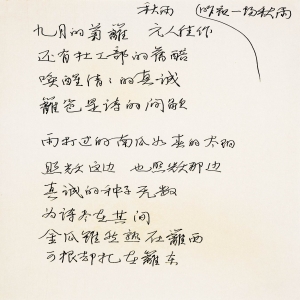 秋雨 (昨夜一场秋雨
九月的菊籬 无人佳作
还有杜工部的舊醅
唤醒债:的真诚
籬笆是诗的间歇
雨打过的南瓜如卖的太阳
照敷这边 也照敷那边
真诚的种子无数
为诗尽在其间
金瓜虽然熟在籬西
可根却扎在籬东